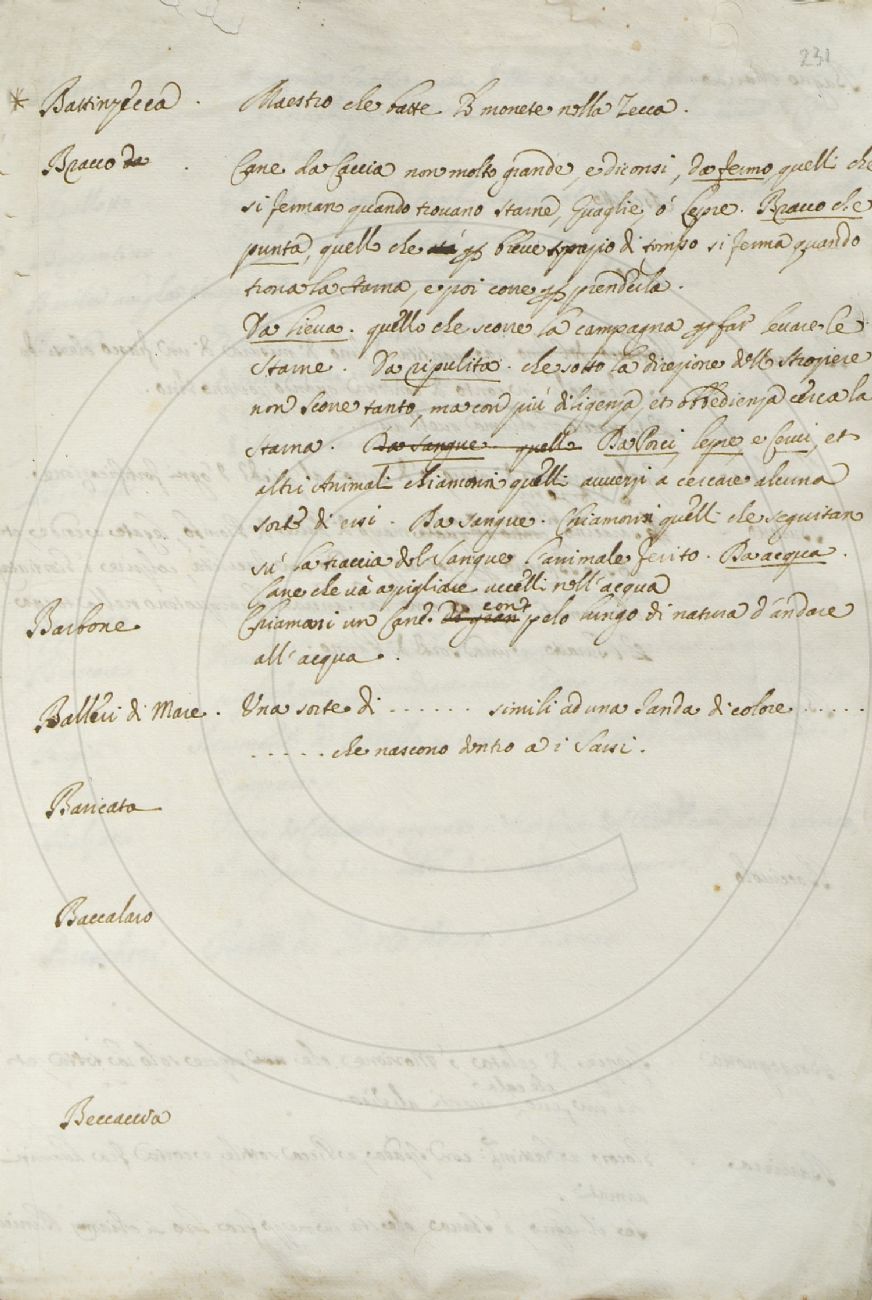 231
* Battinzecca . Maestro che batte le monete nella Zecca .
Bracco da . Cane da Caccia non molto grande, e diconsi, da fermo, quelli che
si ferman quando trovano starne, Quaglie, ò Lepre. Bracco che
punta, quello che stà p breve spazio di tempo si ferma quando
trova la starna, e poi corre p prenderla .
Da lieva . quello che scorre la campagna p far levare le
starne . Da ripulita . che sotto la direzione dello stroziere
non scorre tanto, ma con più diligenza, et obbedienza cerca la
starna . Da sangue . quello Da Porci, lepre e Cervi, et
altri Animali chiamonsi quelli avvezzi a cercare alcuna
sorte di essi . Da sangue . Chiamonsi quelli che seguitan
sù la traccia del sangue l'animale ferito . Da acqua .
Cane che và a pigliare uccelli nell'acqua
Barbone Chiamasi un Cane di gran con pelo lungo di natura d'andare
all'acqua .
Balleri di Mare . Una sorte di . . . . . . simili ad una Janda di colore . . . . .
. . . . . che nascono dentro a i sassi .
Baricata
Baccalaro
Beccaccia